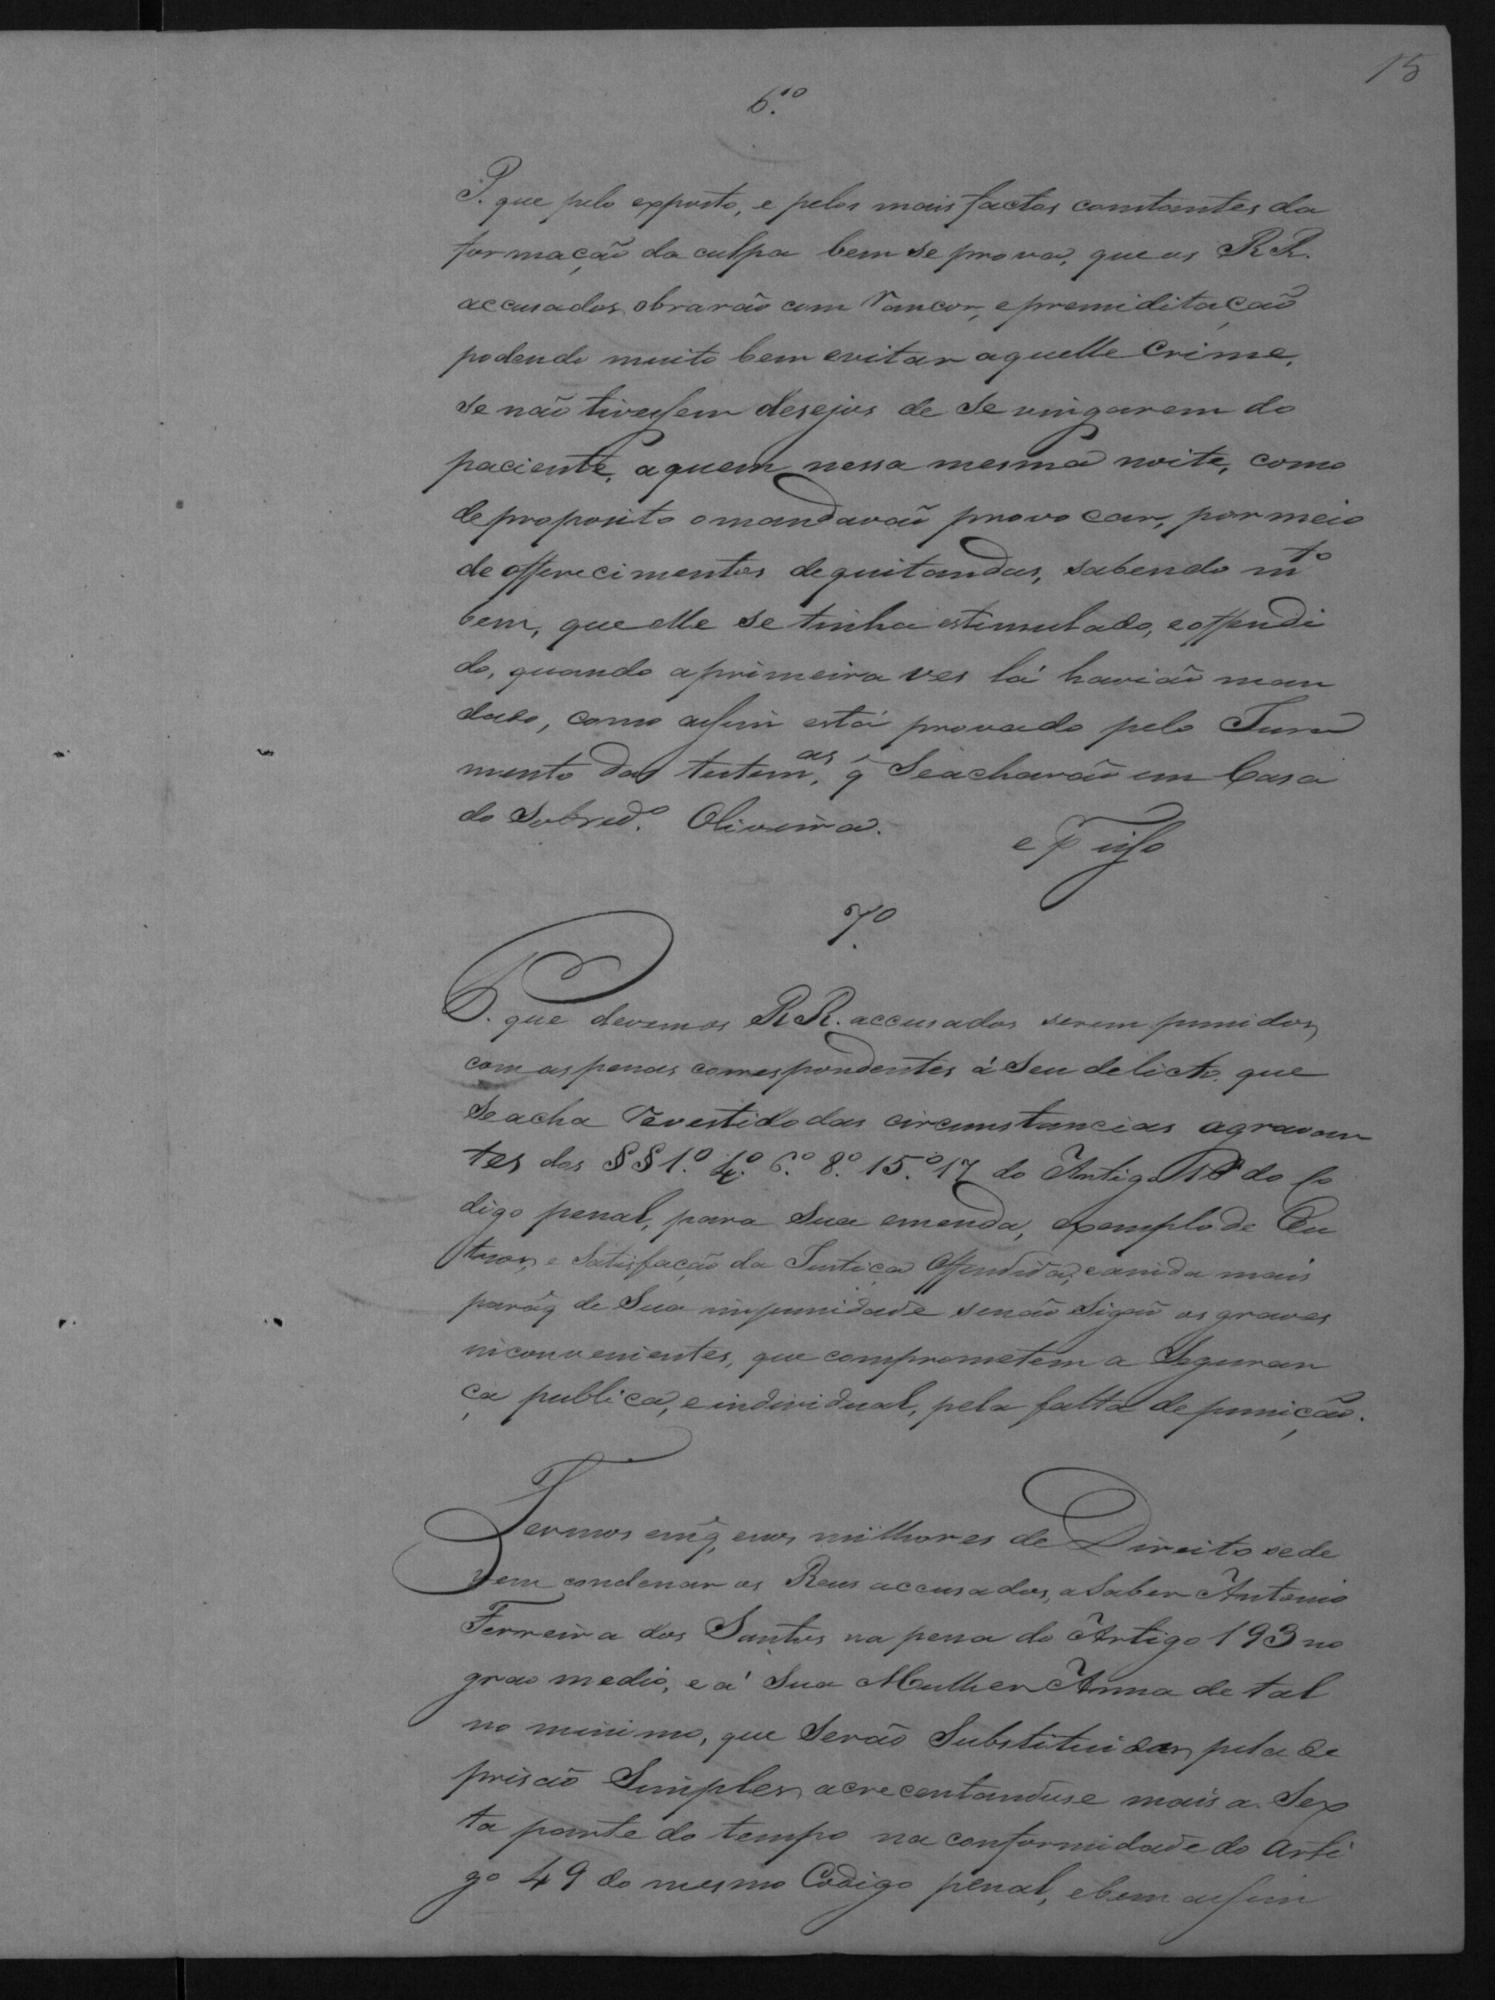 15
6.º
P. que pelo exposto, e pelos mais factos constantes da
formação da culpa bem se prova, que os RR.
accusados obrarão com rancor, e premiditação
podendo muito bem evitar aquelle Crime,
se não tivessem desejos de se vingarem do
paciente, a quem nessa mesma noite, como
de proposito o mandavaõ provocar, por meio
de offerecimentos de quitandas, sabendo m.to
bem, que elle se tinha estimulado, e offendi
do, quando a primeira ves lá havião man
dado, como assim está provado pelo Jura
mento das testem.as, q̃ Se acharão em Casa
do Sobred.º Oliveira.
e P. isso
7.º
P. que devem os RR. accusados serem punidos,
com as penas correspondentes á Seu delicto, que
Se acha revestido das circumstancias agravan
tes dos §§ 1.º 4.º 6.º 8.º 15.º 17 do Artigo 16 do Co
digo penal, para Sua emenda, exemplo de Ou
tros, e Satisfação da Justiça Offendida, e ainda mais
para q̃ de Sua impunidade senão Sigaõ os graves
inconvenientes, que comprometem a Seguran
ça publica, e individual, pela falta de punição.
Termos em q̃, e nos milhores de Direito se de
vem condenar os Reus accusados, a Saber Antonio
Ferreira dos Santos na pena do Artigo 193 no
grao medio, e a' Sua Mulher Anna de tal
no minimo, que Serão Substituidas pela de
prisão Simples, acrecentandose mais a Sex
ta parte do tempo na conformidade do Arti
go 49 do mesmo Codigo penal, e bem assim